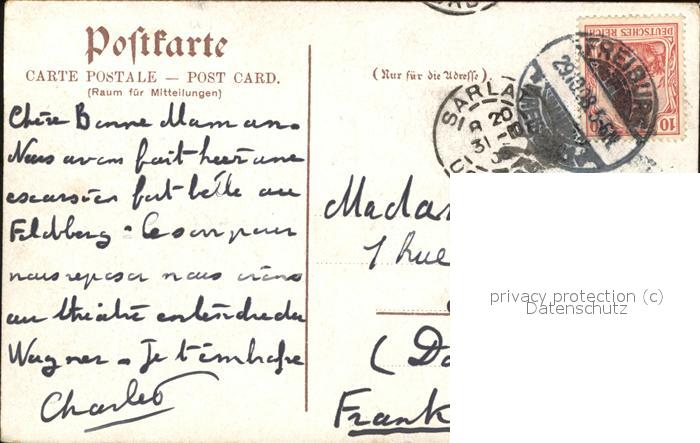 Postkarte
CARTE POSTALE — POST CARD.
(Raum für Mitteilungen)
(Nur für die Adresse)
DEUTSCHES REICH
10 10
FREIBURG
29.10.08.5-6N
SARLAT
20
31
Chère Bonne Maman.
Nous avons fait hier une
excursion fort belle au
Feldberg. Ce soir pour
nous reposer nous irons
au théâtre entendre du
Wagner. Je t'embrasse
Charles
Madam
1 Rue
(Do
Frank
privacy protection (c)
Datenschutz